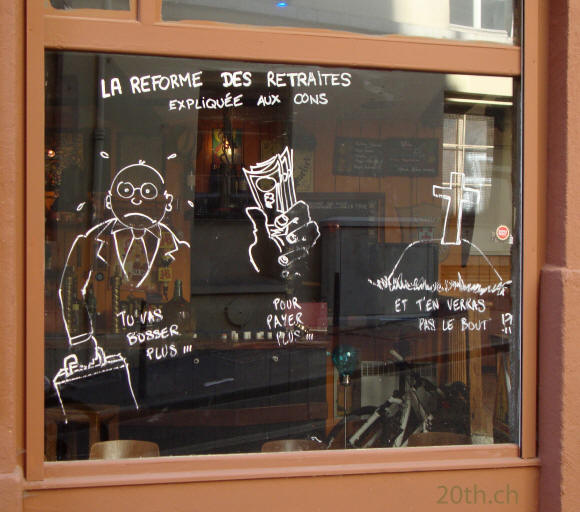 LA REFORME DES RETRAITES
EXPLIQUÉE AUX CONS
TU VAS
BOSSER
PLUS !!!
POUR
PAYER
PLUS !!!
ET T'EN VERRAS
PAS LE BOUT !!!
20th.ch